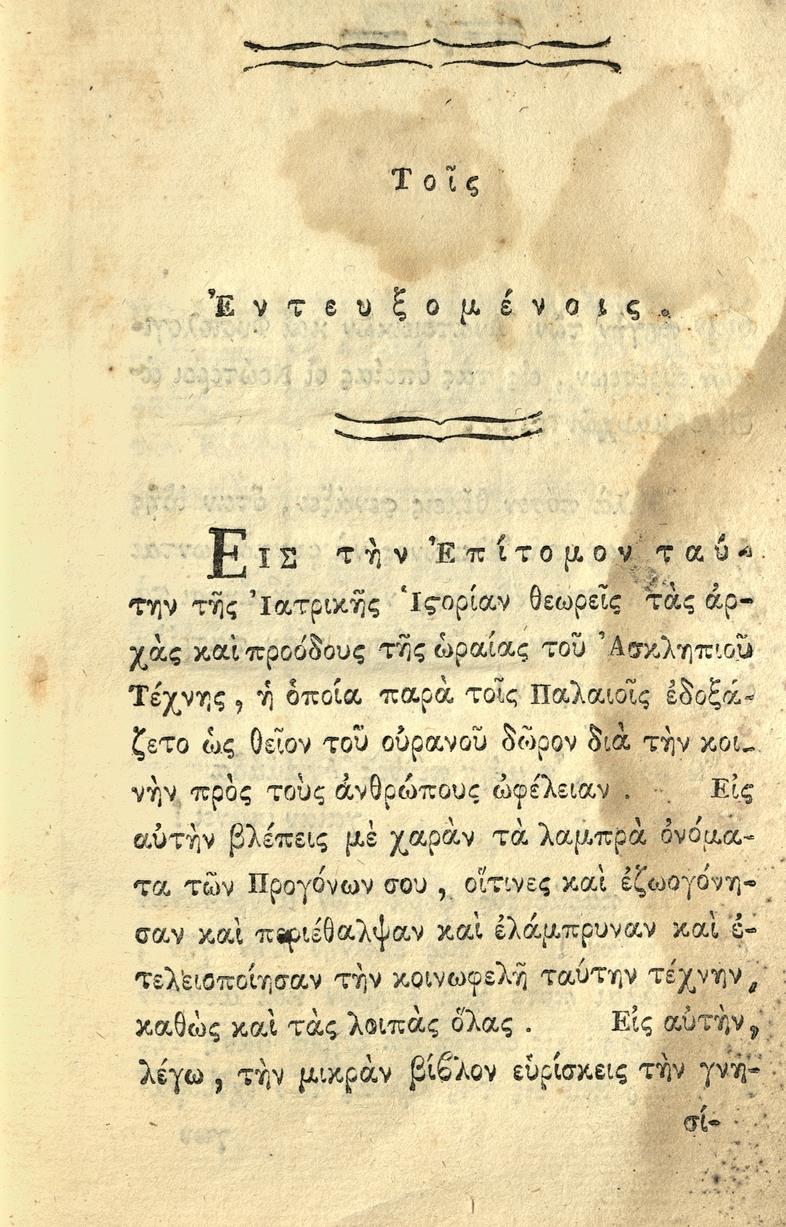 Τοῖς
Ἐντευξομένοις.
Εἰς τὴν Ἐπίτομον ταύ-
την τῆς Ἰατρικῆς Ἱϛορίαν θεωρεῖς τὰς ἀρ-
χὰς καὶ προόδους τῆς ὡραίας τοῦ Ἀσκληπιοῦ
Τέχνης, ἡ ὁποία παρὰ τοῖς Παλαιοῖς ἐδοξά-
ζετο ὡς θεῖον τοῦ οὐρανοῦ δῶρον διὰ τὴν κοι-
νὴν πρὸς τοὺς ἀνθρώπους ὠφέλειαν. Εἰς
αὐτὴν βλέπεις μὲ χαρὰν τὰ λαμπρὰ ὀνόμα-
τα τῶν Προγόνων σου, οἵτινες καὶ ἐζωογόνη-
σαν καὶ περιέθαλψαν καὶ ἐλάμπρυναν καὶ ἐ-
τελειοποίησαν τὴν κοινωφελῆ ταύτην τέχνην,
καθὼς καὶ τὰς λοιπὰς ὅλας. Εἰς αὐτὴν,
λέγω, τὴν μικρὰν βίϐλον εὑρίσκεις τὴν γνη-
σί-